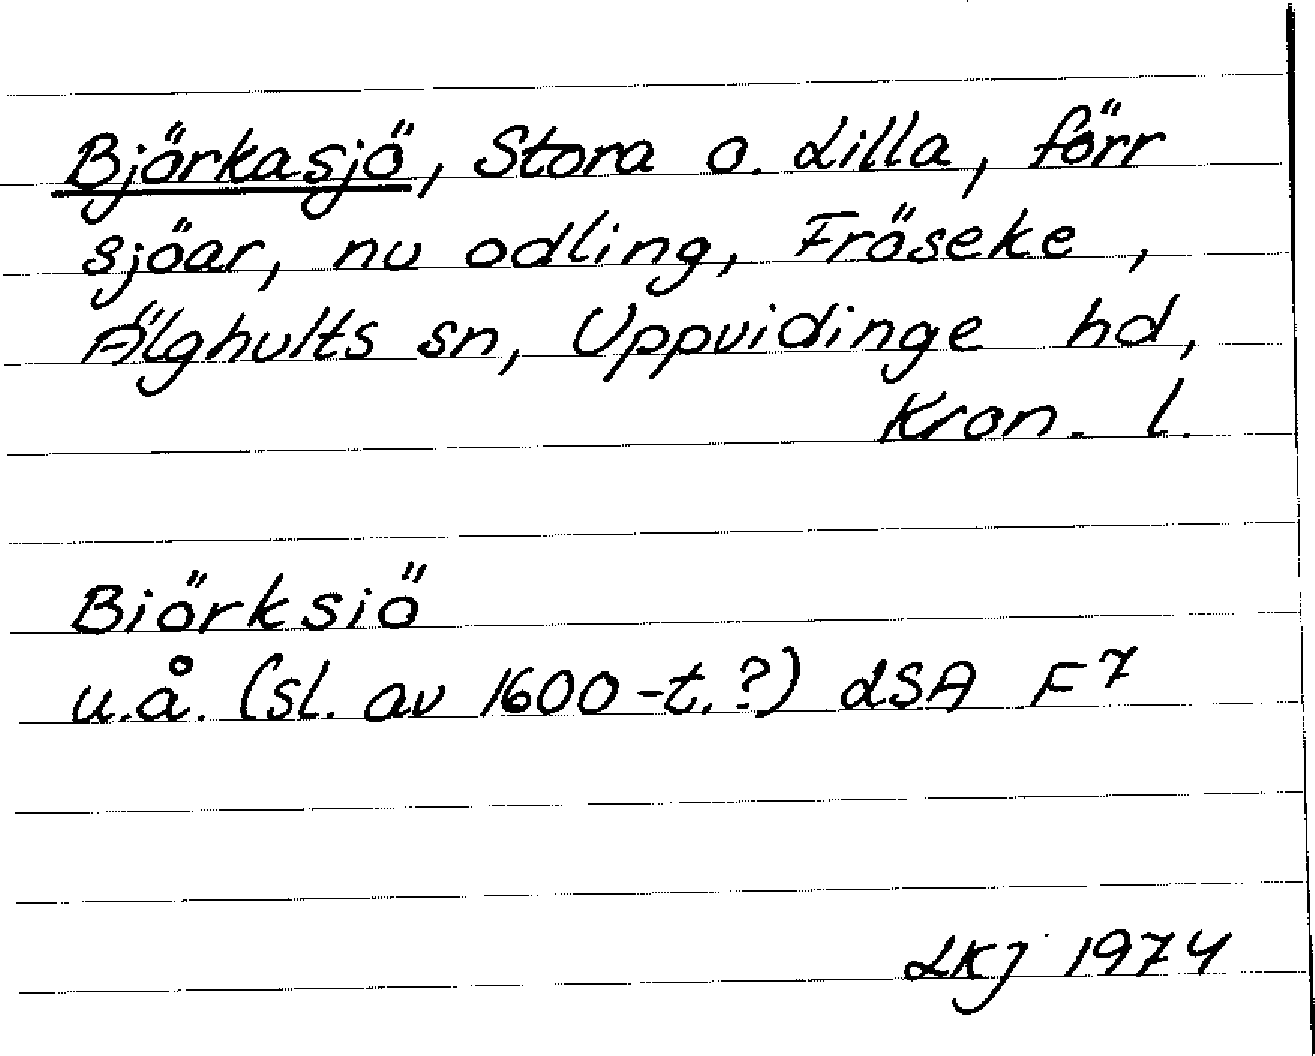 Björkasjö, Stora o. Lilla, förr
sjöar, nu odling, Fröseke,
Älghults sn, Uppvidinge hd,
Kron. l.
Biörksiö
u.å. (sl. av 1600-t.?) LSA F7
LKJ 1974